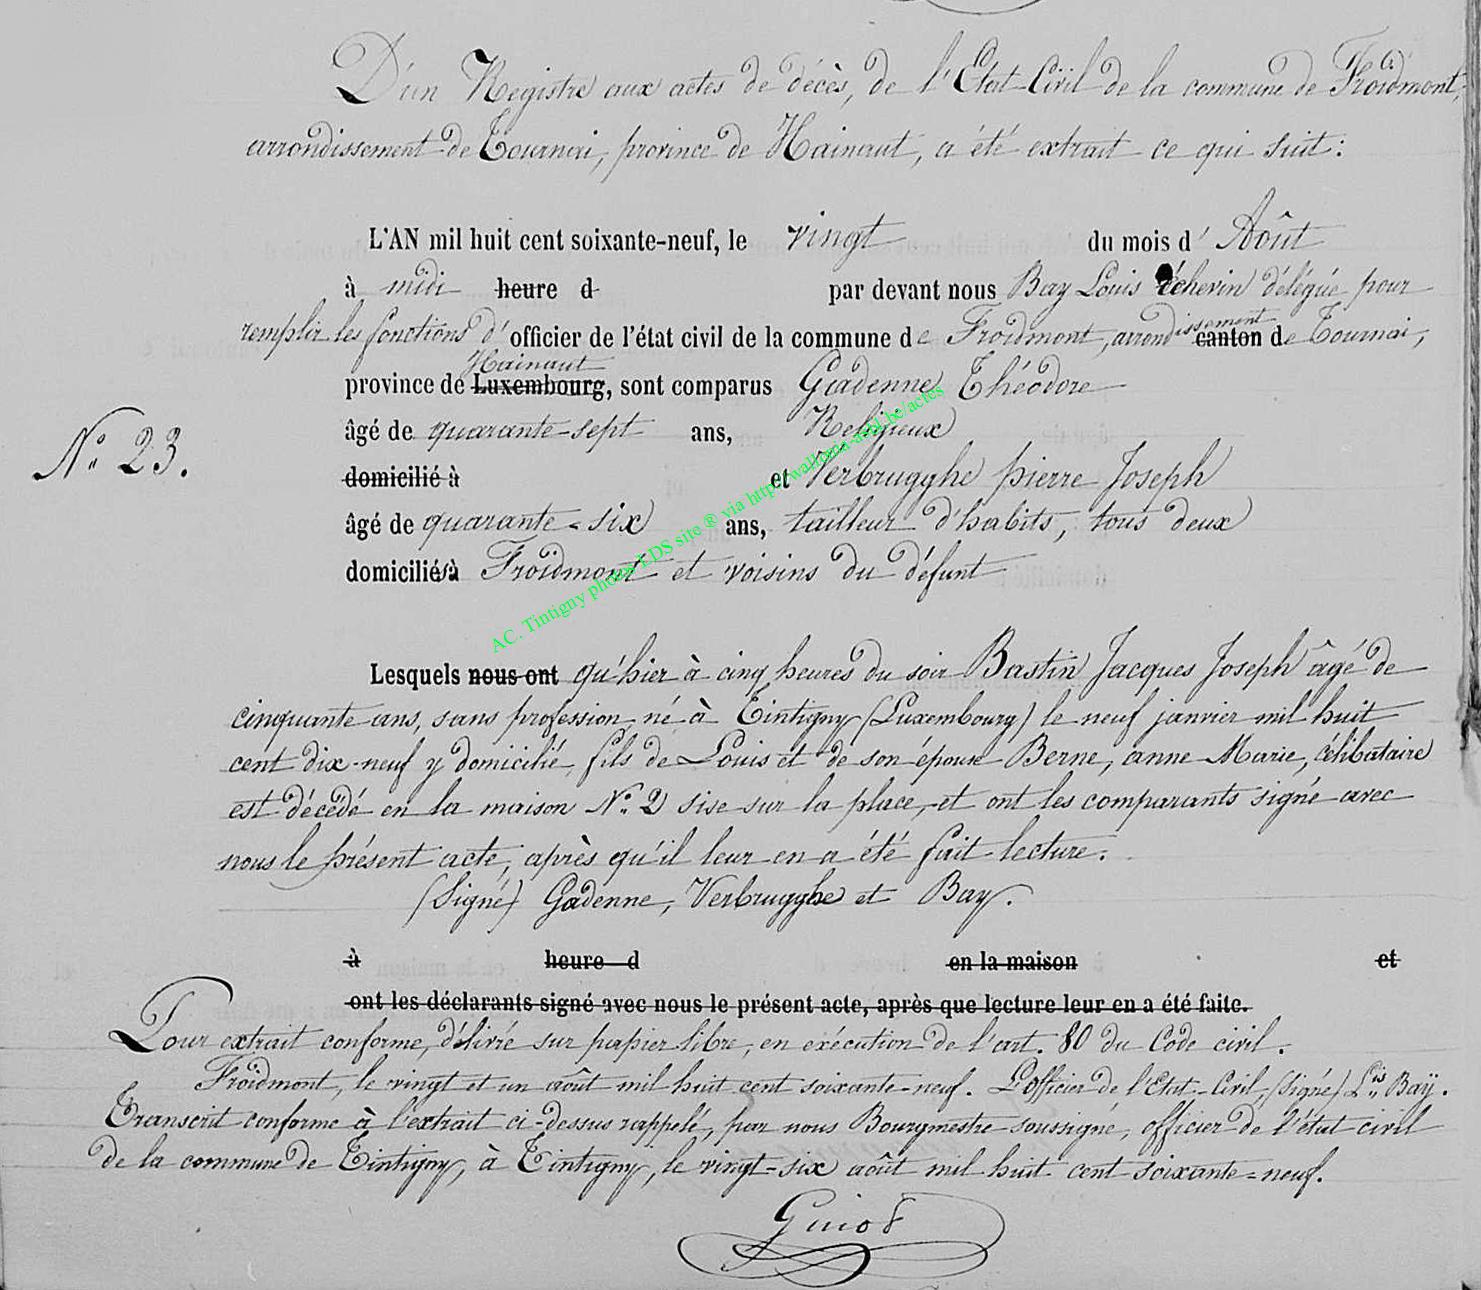 D'un Registre aux actes de décès, de l'Etat-Civil de la commune de Froidmont,
arrondissement de Tournai, province de Hainaut, a été extrait ce qui suit :
L'AN mil huit cent soixante-neuf, le vingt du mois d' Août
à midi heure d par devant nous Bay Louis échevin délégué pour
remplir les fonctions d' officier de l'état civil de la commune de Froidmont, arrondissement canton de Tournai,
Hainaut
province de Luxembourg, sont comparus Gadenne Théodore
âgé de quarante-sept ans, Religieux
N° 23.
domicilié à et Verbrugghe pierre Joseph
âgé de quarante-six ans, tailleur d'habits, tous deux
domiciliés à Froidmont et voisins du défunt
AC. Tintigny photos LDS site ® via http://wallonia-asbl.be/actes
Lesquels nous ont qu'hier à cinq heures du soir Bastin Jacques Joseph âgé de
cinquante ans, sans profession né à Tintigny (Luxembourg) le neuf janvier mil huit
cent dix-neuf y domicilié, fils de Louis et de son épouse Berne, anne Marie, célibataire
est décédé en la maison N° 2 sise sur la place, et ont les comparants signé avec
nous le présent acte, après qu'il leur en a été fait lecture.
(Signé) Gadenne, Verbrugghe et Bay.
à heure d en la maison et
ont les déclarants signé avec nous le présent acte, après que lecture leur en a été faite.
Pour extrait conforme, délivré sur papier libre, en exécution de l'art. 80 du Code civil.
Froidmont, le vingt et un août mil huit cent soixante-neuf. L'officier de l'Etat-Civil, (signé) Lis Baÿ.
Transcrit conforme à l'extrait ci-dessus rappelé, par nous Bourgmestre soussigné, officier de l'état civil
de la commune de Tintigny, à Tintigny, le vingt-six août mil huit cent soixante-neuf.